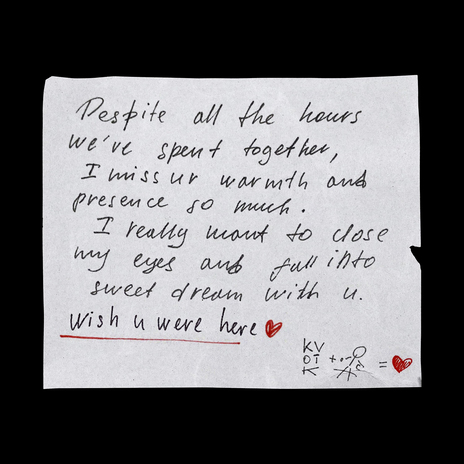 Despite all the hours
we've spent together,
I miss ur warmth and
presence so much.
I really want to close
my eyes and fall into
sweet dream with u.
Wish u were here
KV
OT
K
+ =